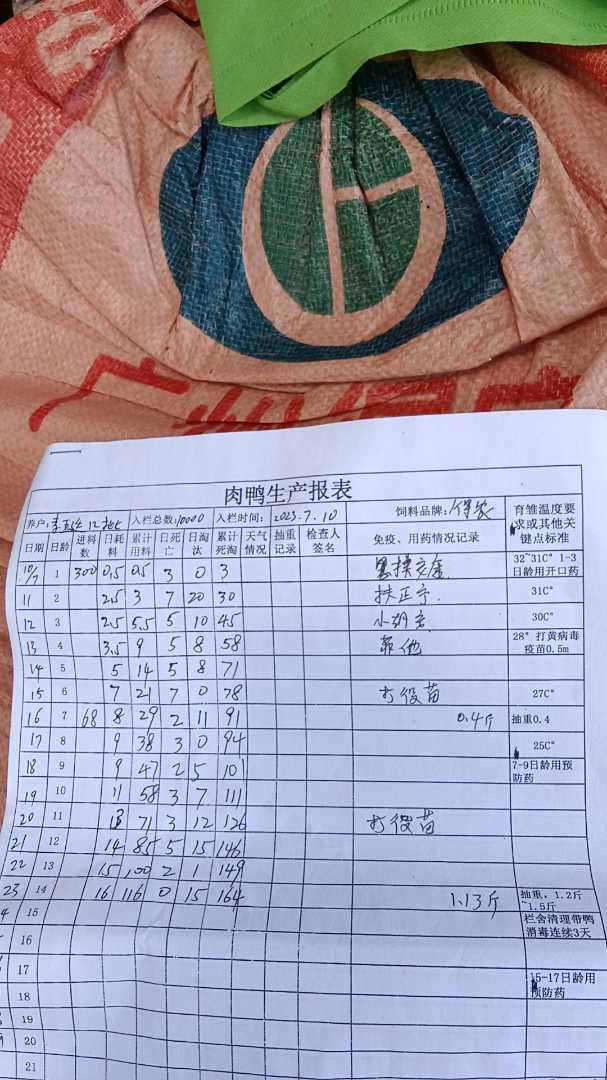 广州
肉鸭生产报表
养户: 12批 入栏总数:10000 入栏时间: 2023.7.10 饲料品牌: 保农 育雏温度要求或其他关键点标准
日期 日龄 进料数 日耗料 累计用料 日死亡 日淘汰 累计死淘 天气情况 抽重记录 检查人签名 免疫、用药情况记录
10/7 1 300 0.5 0.5 3 0 3 32~31C° 1-3日龄用开口药
11 2 2.5 3 7 20 30 扶正 31C°
12 3 2.5 5.5 5 10 45 30C°
13 4 3.5 9 5 8 58 28° 打黄病毒疫苗0.5m
14 5 5 14 5 8 71
15 6 7 21 7 0 78 打役苗 27C°
16 7 68 8 29 2 11 91 0.4斤 抽重0.4
17 8 9 38 3 0 94 25C°
18 9 9 47 2 5 101 7-9日龄用预防药
19 10 11 58 3 7 111
20 11 13 71 3 12 126 打役苗
21 12 14 85 5 15 146
22 13 15 100 2 1 149
23 14 16 116 0 15 164 1.13斤 抽重，1.2斤~1.5斤
15 栏舍清理带鸭消毒连续3天
16
17 15-17日龄用预防药
18
19
20
21